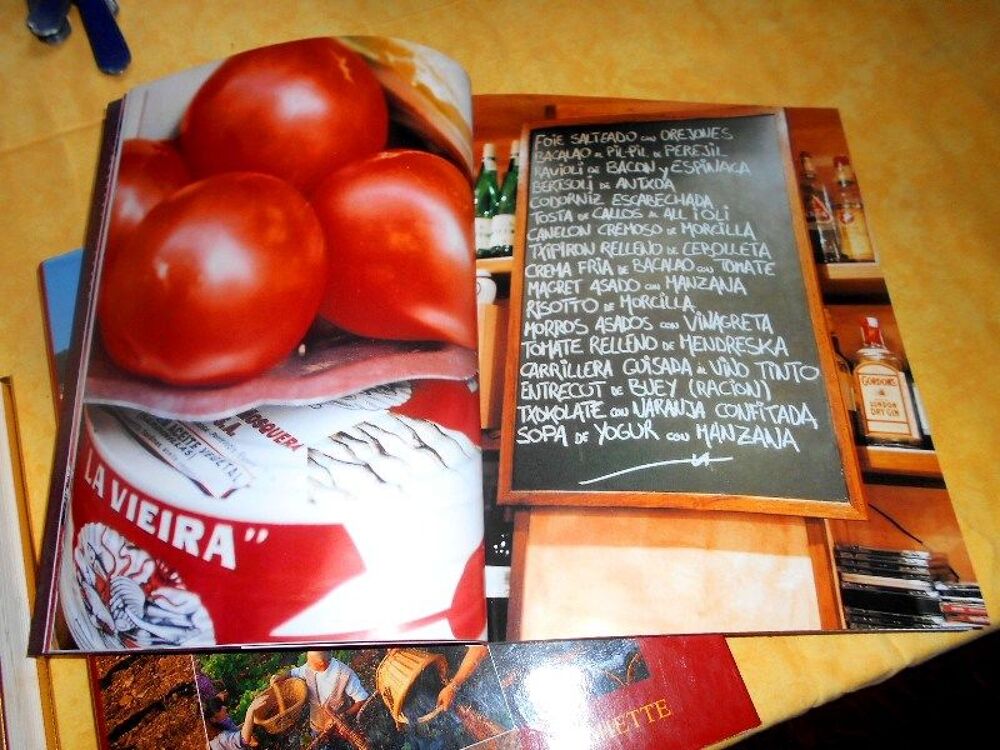 MOSQUERA
S.A.
ACEITE VEGETAL
LA VIEIRA"
FOIE SALTEADO CON OREJONES
BACALAO AL PIL-PIL DE PEREJIL
RAVIOLI DE BACON Y ESPINACA
BERTSOLI DE ANTXOA
CODORNIZ ESCABECHADA
TOSTA DE CALLOS AL ALL i OLI
CANELON CREMOSO DE MORCILLA
TXIPIRON RELLENO DE CEBOLLETA
CREMA FRIA DE BACALAO CON TOMATE
MAGRET ASADO CON MANZANA
RISOTTO DE MORCILLA
MORROS ASADOS CON VINAGRETA
TOMATE RELLENO DE MENDRESKA
CARRILLERA GUISADA AL VINO TINTO
ENTRECOT DE BUEY (RACION)
TXOKOLATE CON NARANJA CONFITADA
SOPA DE YOGUR CON MANZANA
GORDON'S
LONDON
DRY GIN